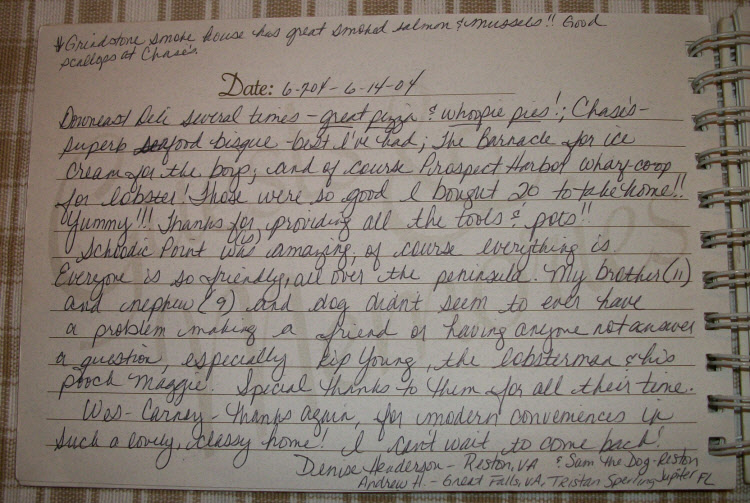 * Grindstone smoke house has great smoked salmon & mussels!! Good
scallops at Chase's
Date: 6-7-04 - 6-14-04
Downeast Deli several times - great pizza & whoopie pies!; Chase's -
superb seafood bisque - best I've had; The Barnacle for ice
cream for the boys; and of course Prospect Harbor wharf co-op
for lobster! Those were so good I bought 20 to take home!!
Yummy!!! Thanks for providing all the tools & pots!!
Schoodic Point was (is) amazing, of course everything is.
Everyone is so friendly, all over the peninsula. My brother (11)
and nephew (9) and dog didn't seem to ever have
a problem making a friend or having anyone not answer
a question, especially Kip Young, the lobsterman & his
pooch Maggie. Special thanks to them for all their time.
Wes - Carney - thanks again, for modern conveniences in
such a lovely, classy home! I can't wait to come back!
Denise Henderson - Reston, VA & Sam the Dog - Reston
Andrew H. - Great Falls, VA, Tristan Sperling Jupiter FL